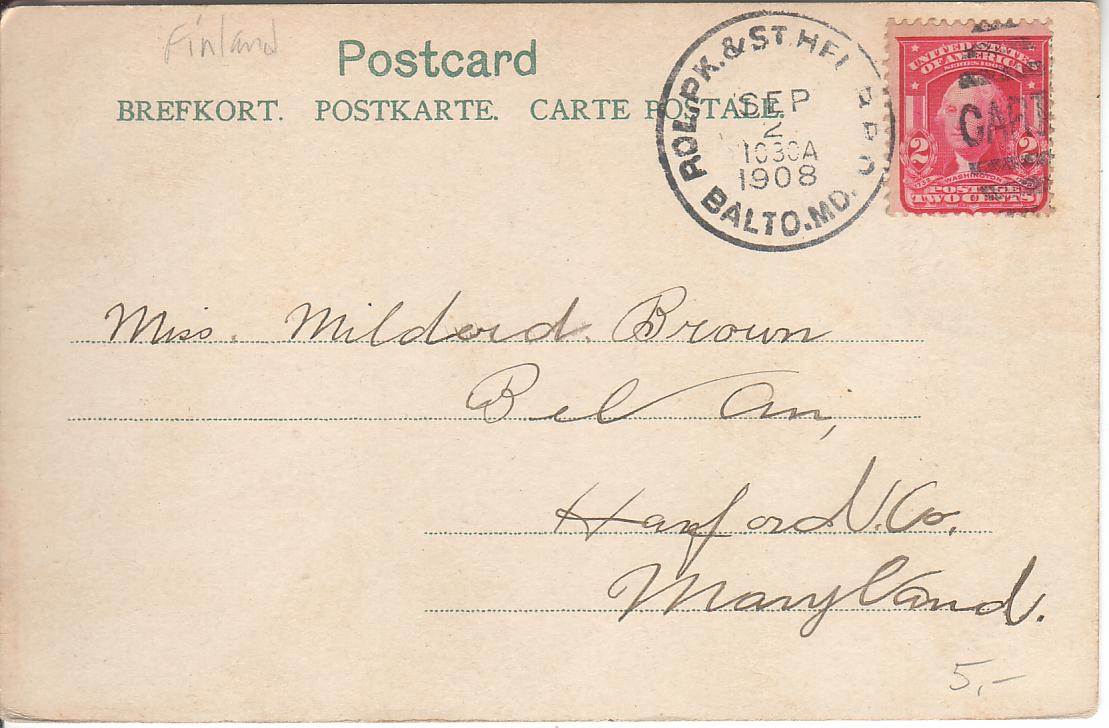 Finland
Postcard
BREFKORT. POSTKARTE. CARTE POSTALE.
ROL.PK.&ST.HEL
SEP
2
1030A
1908
BALTO.MD.
UNITED STATES
OF AMERICA
SERIES 1902
CAR
2 2
WASHINGTON
POSTAGE
TWO CENTS
Miss. Mildord. Brown
Bel An,
Harford. Co.
Maryland.
5,-